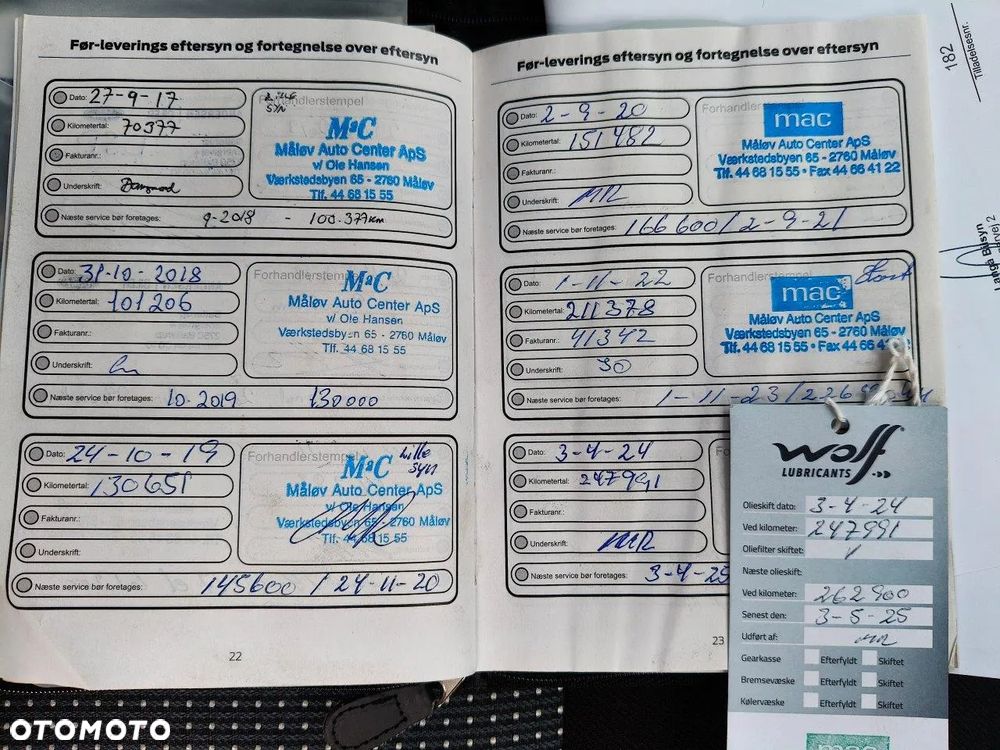 Før-leverings eftersyn og fortegnelse over eftersyn
Dato: 27-9-17
Kilometertal: 70377
Fakturanr.:
Underskrift:
Næste service bør foretages: 9-2018 - 100.377 km
Forhandlerstempel
SYN
M&C
Måløv Auto Center ApS
v/ Ole Hansen
Værkstedsbyen 65 - 2760 Måløv
Tlf. 44 68 15 55
Dato: 31-10-2018
Kilometertal: 101206
Fakturanr.:
Underskrift:
Næste service bør foretages: 10.2019 130000
Forhandlerstempel
M&C
Måløv Auto Center ApS
v/ Ole Hansen
Værkstedsbyen 65 - 2760 Måløv
Tlf. 44 68 15 55
Dato: 24-10-19
Kilometertal: 130651
Fakturanr.:
Underskrift:
Næste service bør foretages: 145600 / 24-11-20
Forhandlerstempel
Lille
syn
M&C
Måløv Auto Center ApS
v/ Ole Hansen
Værkstedsbyen 65 - 2760 Måløv
Tlf. 44 68 15 55
22
Før-leverings eftersyn og fortegnelse over eftersyn
Dato: 2-9-20
Kilometertal: 151482
Fakturanr.:
Underskrift: MR
Næste service bør foretages: 166600 / 2-9-21
Forhandlerstempel
mac
Måløv Auto Center ApS
Værkstedsbyen 65 - 2760 Måløv
Tlf. 44 68 15 55 • Fax 44 66 41 22
Dato: 1-11-22
Kilometertal: 211378
Fakturanr.: 41342
Underskrift: JO
Næste service bør foretages: 1-11-23 /
Forhandlerstempel
mac
Måløv Auto Center ApS
Værkstedsbyen 65 - 2760 Måløv
Tlf. 44 68 15 55 • Fax 44 66
Dato: 3-4-24
Kilometertal: 247991
Fakturanr.:
Underskrift: MR
Næste service bør foretages: 3-4-25
23
wolf
LUBRICANTS
Olieskift dato: 3-4-24
Ved kilometer: 247991
Oliefilter skiftet:
Næste olieskift:
Ved kilometer: 262900
Senest den: 3-5-25
Udført af: MR
Gearkasse Efterfyldt Skiftet
Bremsevæske Efterfyldt Skiftet
Kølervæske Efterfyldt Skiftet
mac
182
Tilladelsesnr.
OTOMOTO